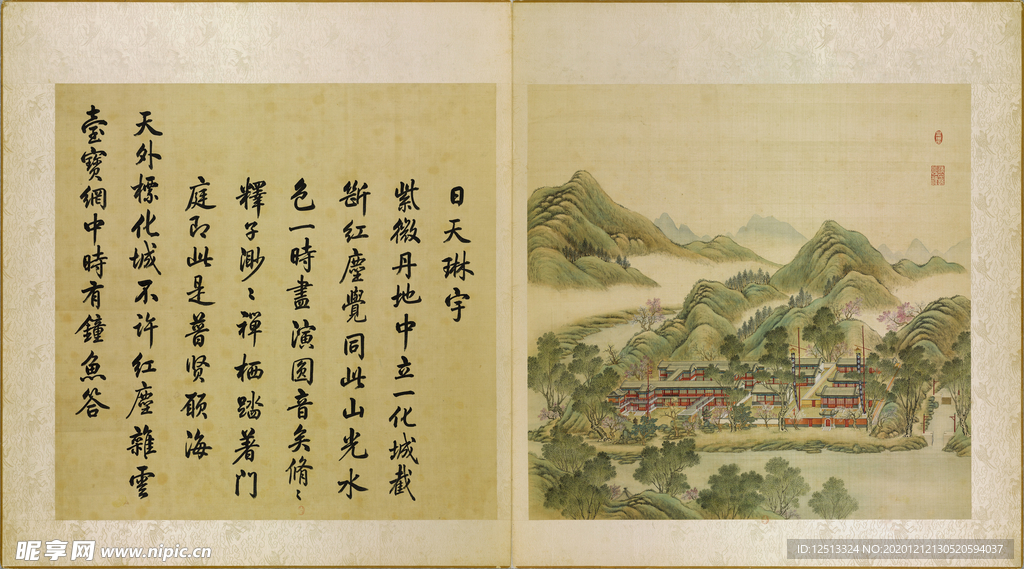 日天琳宇
紫微丹地中立一化城截
斷紅塵覺同此山光水
色一時盡演圓音矣脩〻
釋子渺〻禪栖踏著門
庭即此是普賢願海
天外標化城不許紅塵雜雲
臺寶網中時有鐘魚答
昵享网 www.nipic.cn
ID:12513324 NO:20201212130520594037